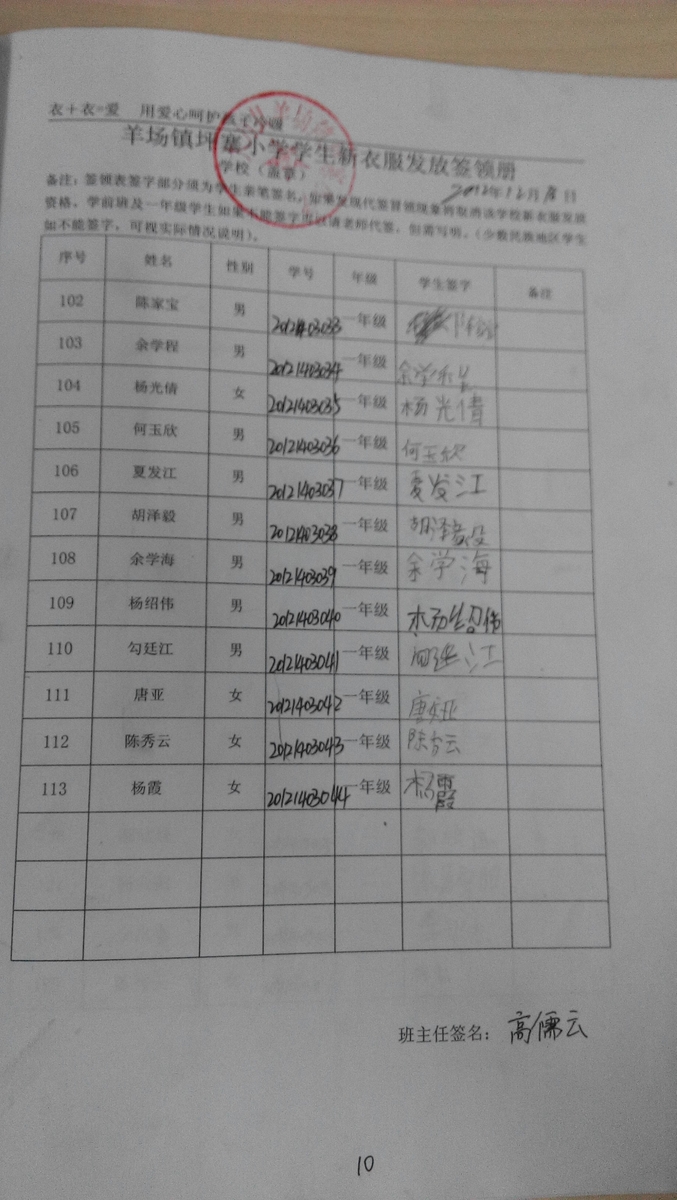 衣+衣=爱 用爱心呵护孩子冷暖
羊场镇坪寨小学学生新衣服发放签领册
学校（盖章） 2012年12月 日
备注：签领表签字部分须为学生亲笔签名，如果发现代签冒领现象将取消该学校新衣服发放
资格，学前班及一年级学生如果不能签字可以请老师代签，但需写明。（少数民族地区学生
如不能签字，可视实际情况说明）。
序号 姓名 性别 学号 年级 学生签字 备注
102 陈家宝 男 20121403033 一年级
103 余学程 男 20121403034 一年级 余学程
104 杨光倩 女 20121403035 一年级 杨光倩
105 何玉欣 男 20121403036 一年级 何玉欣
106 夏发江 男 20121403037 一年级 夏发江
107 胡泽毅 男 20121403038 一年级 胡泽毅
108 余学海 男 20121403039 一年级 余学海
109 杨绍伟 男 20121403040 一年级 杨绍伟
110 勾廷江 男 20121403041 一年级
111 唐亚 女 20121403042 一年级 唐亚
112 陈秀云 女 20121403043 一年级 陈秀云
113 杨霞 女 20121403044 一年级 杨霞
班主任签名：高儒云
10